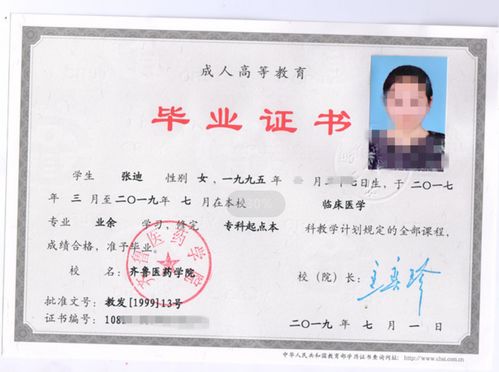 成人高等教育
毕业证书
学生 张迪 性别 女，一九九五年 二十七日生，于二〇一七
年 三 月至二〇一九年 七 月在本校 临床医学
专业 业余 学习，修完 专科起点本 科教学计划规定的全部课程，
成绩合格，准予毕业。
校 名：齐鲁医药学院 校（院）长：
批准文号：教发[1999]13号
证书编号：108
二〇一九 年 七 月 一 日
中华人民共和国教育部学历证书查询网址：http://www.chsi.com.cn
齐鲁医药学院